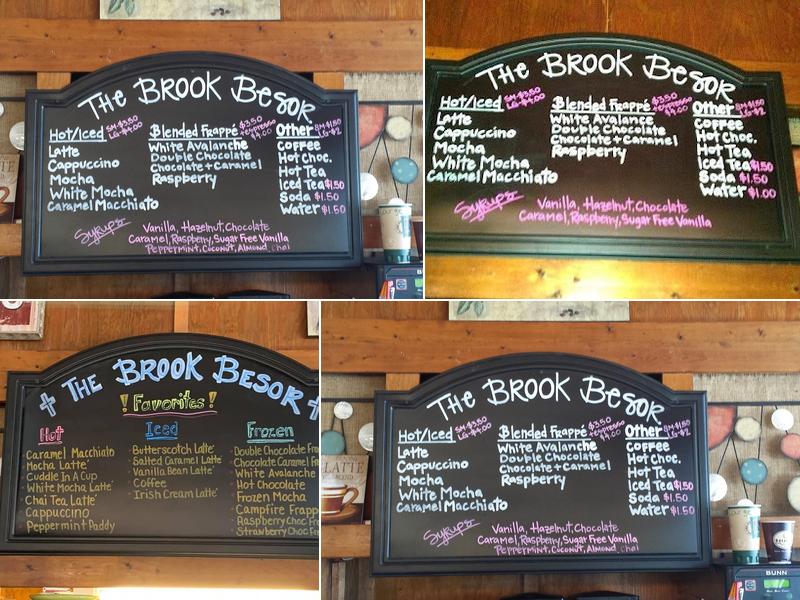 THE BROOK BESOR
Hot/Iced SM-$3.50 LG-$4.00
Latte
Cappuccino
Mocha
White Mocha
Caramel Macchiato
Blended Frappé $3.50
+espresso $4.00
White Avalanche
Double Chocolate
Chocolate + Caramel
Raspberry
Other SM $1.50 LG-$2
Coffee
Hot Choc.
Hot Tea
Iced Tea $1.50
Soda $1.50
Water $1.50
Syrups
Vanilla, Hazelnut, Chocolate
Caramel, Raspberry, Sugar Free Vanilla
Peppermint, Coconut, Almond, Chai
THE BROOK BESOR
Hot/Iced SM-$3.50 LG-$4.00
Latte
Cappuccino
Mocha
White Mocha
Caramel Macchiato
Blended Frappé $3.50
+espresso $4.00
White Avalance
Double Chocolate
Chocolate + Caramel
Raspberry
Other SM $1.50 LG-$2
Coffee
Hot Choc.
Hot Tea
Iced Tea $1.50
Soda $1.50
Water $1.00
Syrups
Vanilla, Hazelnut, Chocolate
Caramel, Raspberry, Sugar Free Vanilla
THE BROOK BESOR
! Favorites !
Hot
Caramel Macchiato
Mocha Latte'
Cuddle In A Cup
White Mocha Latte'
Chai Tea Latte'
Cappuccino
Peppermint Paddy
Iced
Butterscotch Latte'
Salted Caramel Latte'
Vanilla Bean Latte'
Coffee
Irish Cream Latte'
Frozen
Double Chocolate Fra
Chocolate Caramel Fr
White Avalanche
Hot Chocolate
Frozen Mocha
Campfire Frapp
Raspberry Choc Fr
Strawberry Choc Fr
THE BROOK BESOR
Hot/Iced SM-$3.50 LG-$4.00
Latte
Cappuccino
Mocha
White Mocha
Caramel Macchiato
Blended Frappé $3.50
+espresso $4.00
White Avalanche
Double Chocolate
Chocolate + Caramel
Raspberry
Other SM $1.50 LG-$2
Coffee
Hot Choc.
Hot Tea
Iced Tea $1.50
Soda $1.50
Water $1.50
Syrups
Vanilla, Hazelnut, Chocolate
Caramel, Raspberry, Sugar Free Vanilla
Peppermint, Coconut, Almond, Chai
LATTE
BUNN